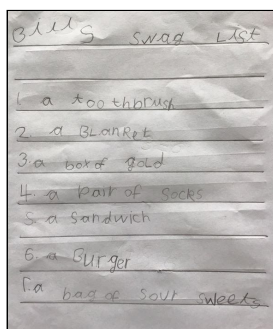 Bills swag List
1 a toothbrush
2 a BLanket
3. a box of gold
4. a pair of socks
5 a sandwich
6 a Burger
7. a bag of sour sweets